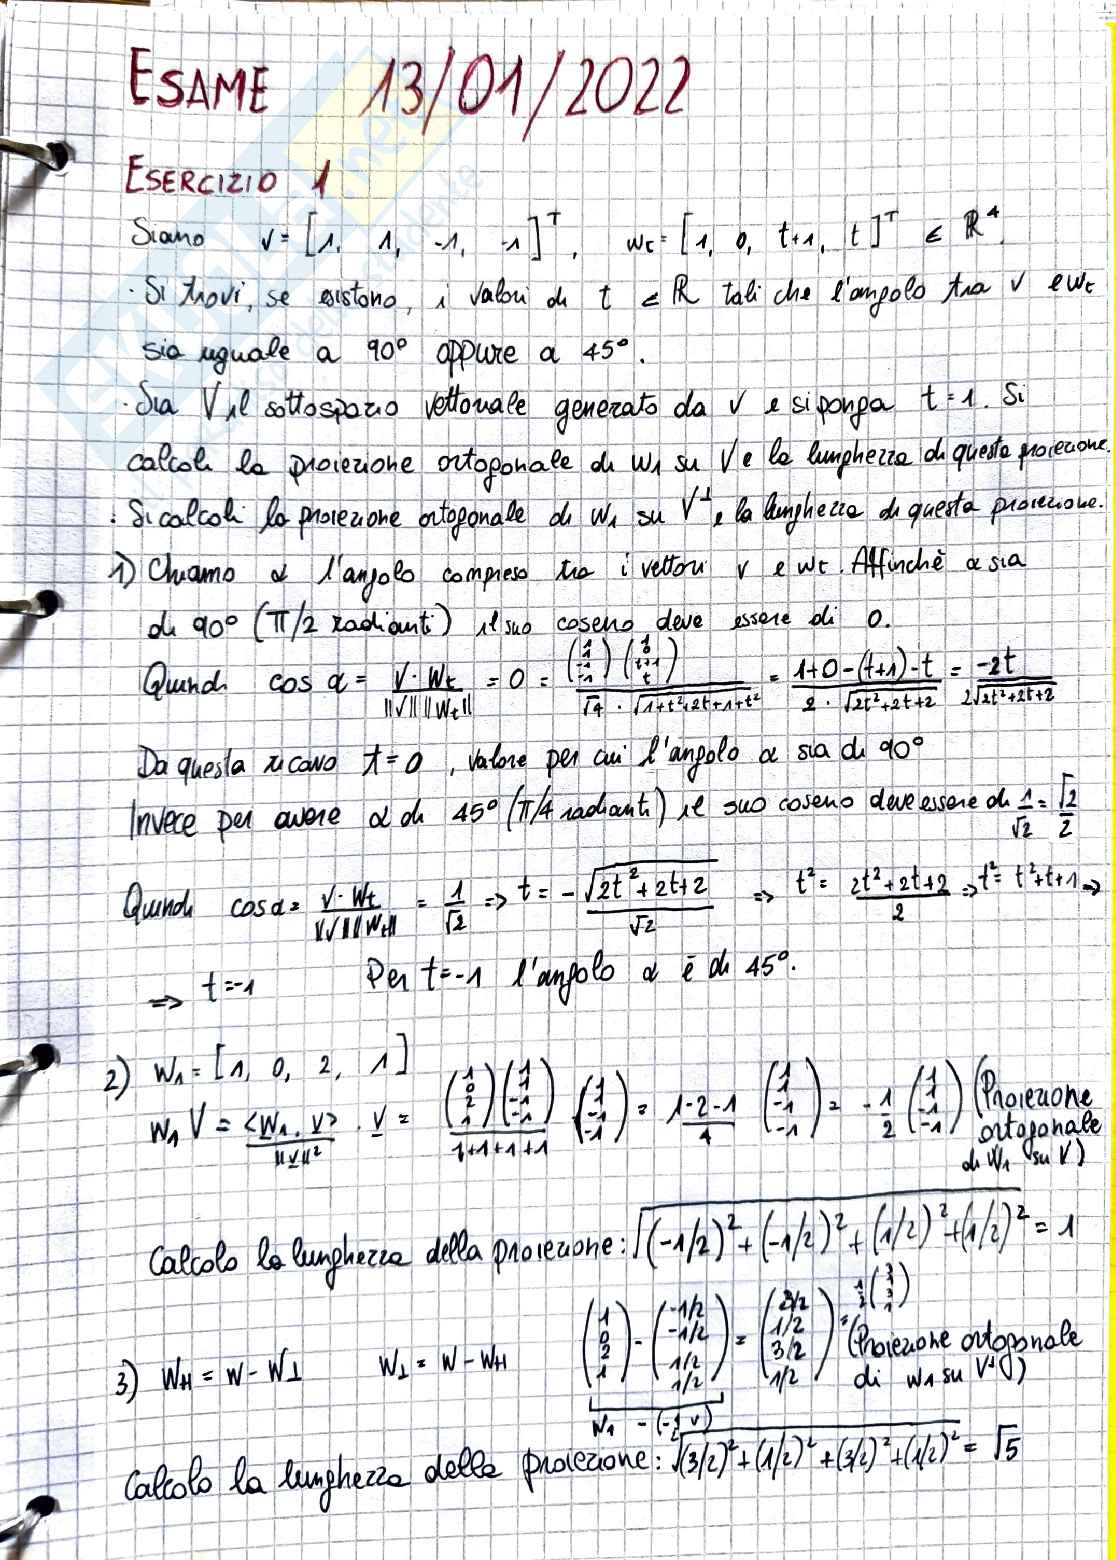 ESAME 13/01/2022
ESERCIZIO 1
Siano v = [1, 1, -1, -1]ᵀ, wt = [1, 0, t+1, t]ᵀ ∈ ℝ⁴.
· Si trovi, se esistono, i valori di t ∈ ℝ tali che l'angolo tra v e wt
sia uguale a 90° oppure a 45°.
· Sia V il sottospazio vettoriale generato da v e si ponga t=1. Si
calcoli la proiezione ortogonale di w1 su V e la lunghezza di questa proiezione.
· Si calcoli la proiezione ortogonale di w1 su V⊥ e la lunghezza di questa proiezione.
1) Chiamo α l'angolo compreso tra i vettori v e wt. Affinchè α sia
di 90° (π/2 radianti) il suo coseno deve essere di 0.
Quindi cos α = v·wt / ||v|| ||wt|| = 0 = (1 1 -1 -1)(1 0 t+1 t) / √4 · √1+t²+2t+1+t² = 1+0-(t+1)-t / 2·√2t²+2t+2 = -2t / 2√2t²+2t+2
Da questa ricavo t=0, valore per cui l'angolo α sia di 90°
Invece per avere α di 45° (π/4 radianti) il suo coseno deve essere di 1/√2 = √2/2
Quindi cos α = v·wt / ||v|| ||wt|| = 1/√2 => t = - √2t²+2t+2 / √2 => t² = 2t²+2t+2 / 2 => t² = t²+t+1 =>
=> t=-1 Per t=-1 l'angolo α è di 45°.
2) w1 = [1, 0, 2, 1]
w1 V = <w1, v> / ||v||² · v = (1 0 2 1)(1 1 -1 -1) / 1+1+1+1 · (1 1 -1 -1) = 1-2-1 / 4 (1 1 -1 -1) = -1/2 (1 1 -1 -1) (Proiezione ortogonale di w1 su V)
Calcolo la lunghezza della proiezione: √(-1/2)²+(-1/2)²+(1/2)²+(1/2)² = 1
3) WH = W - W⊥ W⊥ = W - WH (1 0 2 1) - (-1/2 -1/2 1/2 1/2) = (3/2 1/2 3/2 1/2) = (Proiezione ortogonale di w1 su V⊥)
w1 - (-1/2 v)
Calcolo la lunghezza della proiezione: √(3/2)²+(1/2)²+(3/2)²+(1/2)² = √5